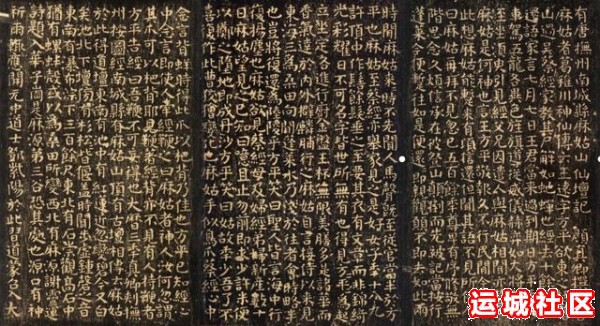 有唐撫州南城縣麻姑山仙壇記 顏真卿
麻姑者葛稚川神仙傳云王遠字方平欲東之括蒼
山過吳蔡經家教其尸解如蛇蟬也經去十餘年忽
還語家言七月七日王君當來過到期日方平乘羽
車駕五龍各異色旌旗導從威儀赫弈如大將也既
至坐須臾引見經父兄因遣人與麻姑相聞亦莫知
麻姑是何神也言王方平敬報久不行民間今來在
此想麻姑能暫來有頃信還但聞其語不見所使人
曰麻姑再拜不見忽已五百餘年尊卑有序脩敬無
階思念久煩信承在彼登山顛倒而先被記當按行
蓬萊今便暫往如是便還還即親觀願不即去如此兩
時間麻姑來來時不先聞人馬聲既至從官當半於方
平也麻姑至蔡經亦舉家見之是好女子年十八九
許頂中作髻餘髮垂之至要其衣有文章而非錦綺
光彩耀日不可名字皆世所無有也得見方平方平為起
立坐定各進行廚金盤玉杯無限美膳多是諸華而
香氣達於內外擗麟脯行之麻姑自言接待以來見
東海三為桑田向間蓬萊水乃淺於往者會時略半
也豈將復還為陸陵乎方平笑曰聖人皆言海中行
復揚塵也麻姑欲見蔡經母及婦經弟婦新產數十
日麻姑望見之已知曰噫且止勿前即求少許米便
以擲之墮地即成丹沙方平笑曰姑故年少吾了不
喜復作此曹狡獪變化也麻姑手似鳥爪蔡經心中
念言背蛘時得此爪以杷背乃佳也方平已知經心
中念言即使人牽經鞭之曰麻姑者神人汝何忽謂
其爪可以杷背耶見鞭著經背亦不見有人持鞭者
方平告經曰吾鞭不可妄得也大曆三年真卿刺撫
州按圖經南城縣有麻姑山頂有古壇相傳云麻姑
於此得道壇東南有池中有紅蓮近忽變碧今又白
矣池北下壇傍有杉松松皆偃蓋時聞步虛鍾磬之音
東南有瀑布淙下三百餘尺東北有石崇觀高石中
猶有螺蚌殼或以為桑田所變西北有麻源謝靈運
詩題入華子岡是麻源第三谷恐其處也源口有神
祈雨輒應開元中道士鄧紫陽於此習道蒙召入大
运城社区